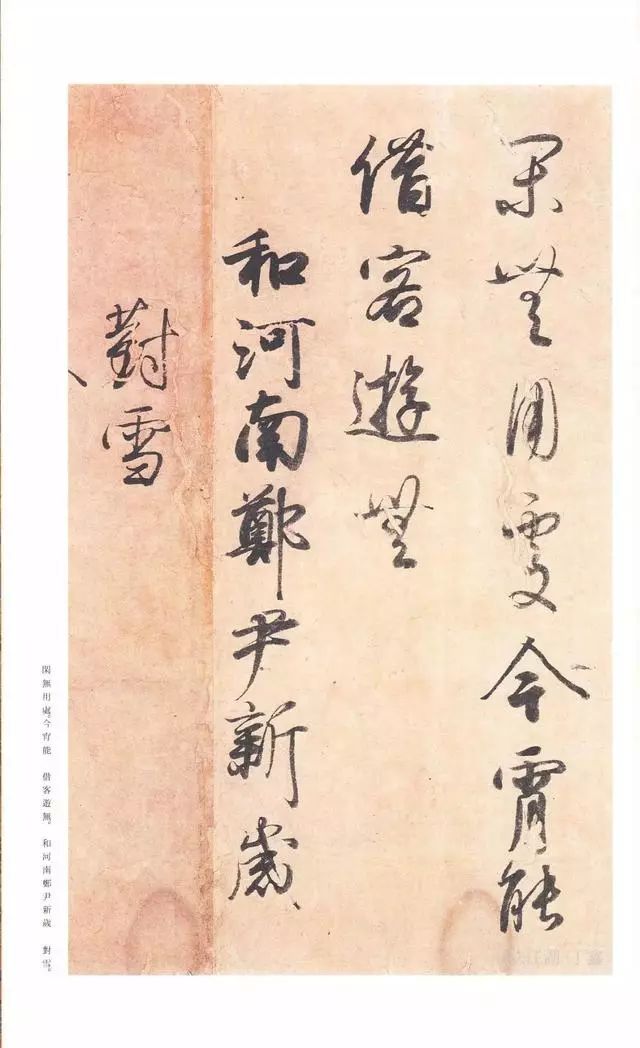 閑無用處今霄能
借客遊無
和河南鄭尹新歲
對雪
閑無用處。今宵能　借客遊無。　和河南鄭尹新歲　對雪。